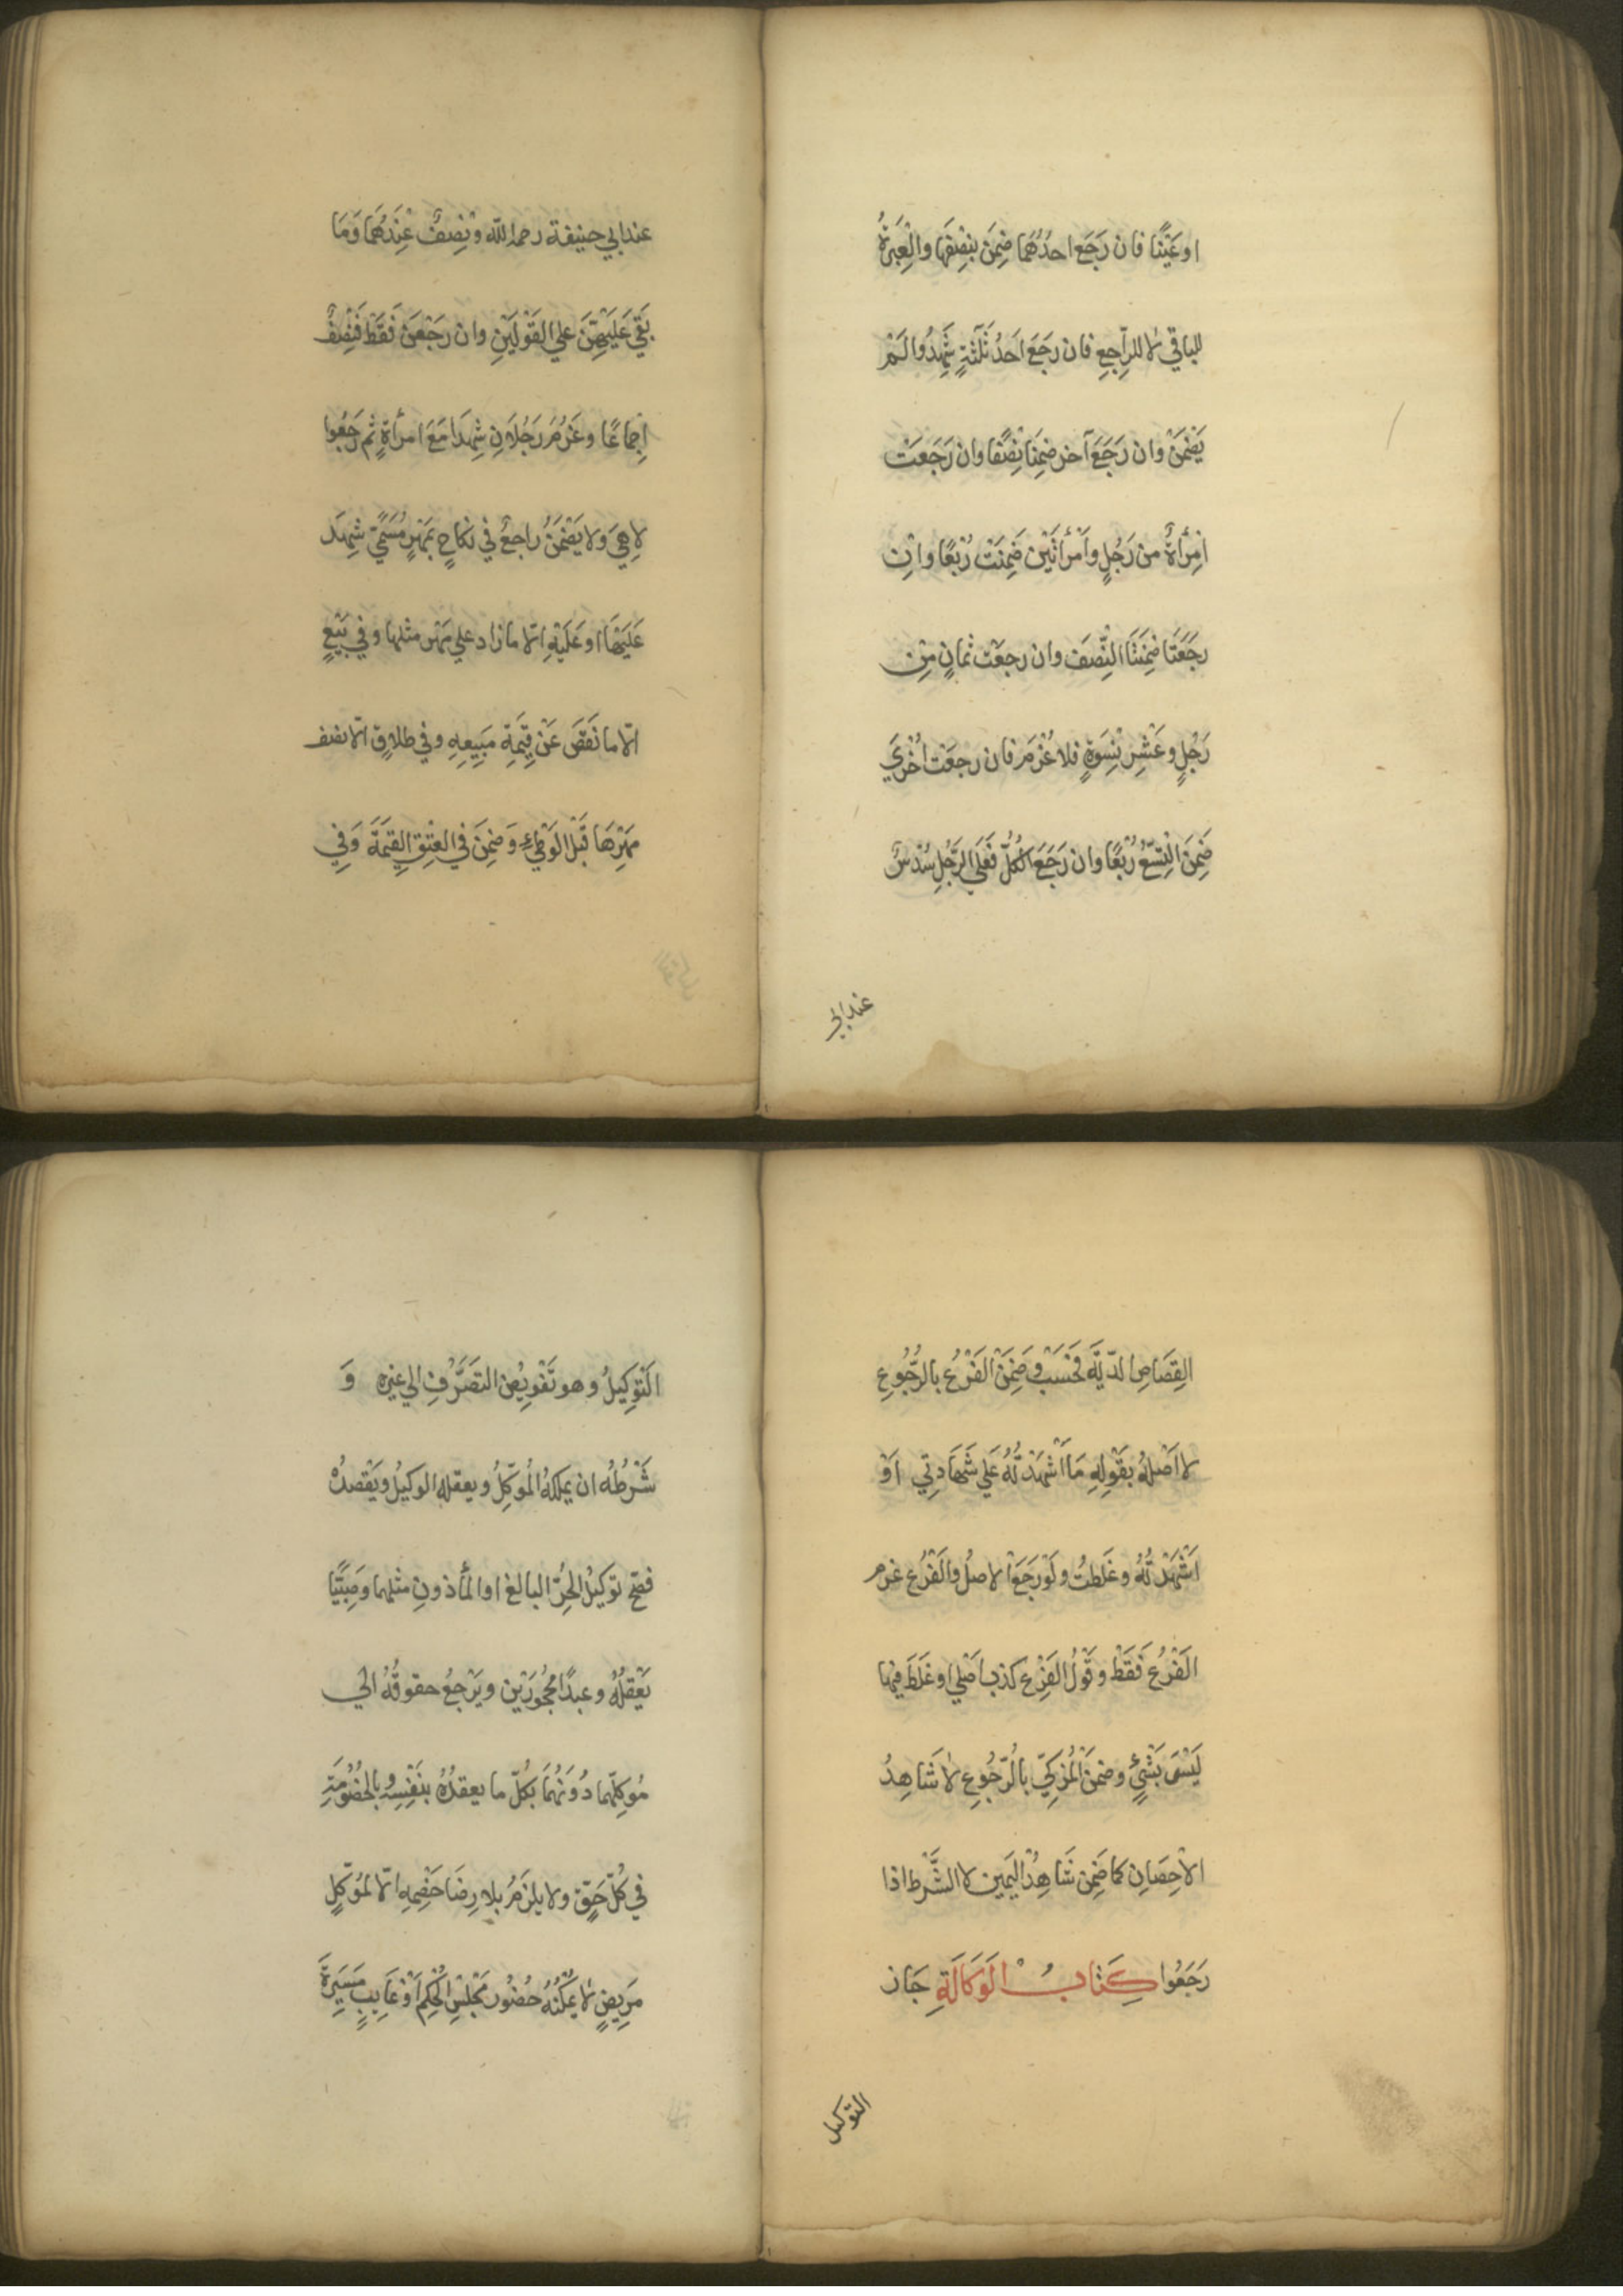 او عَيْنًا فان رَجَع احدُهُمَا ضِمَنَ بنِصْفِهَا والْعِبَرةُ
للباقي لا للرّاجِعِ فان رَجَعَ اَحَدُ ثَلٰثَةٍ شَهِدُوا لَمْ
يَضْمَنْ وان رَجَعَ آخر ضمِنَا نِصْفًا وان رَجَعَتْ
امْرأةٌ من رَجُلٍ وامْرأتَيْن ضَمِنَتْ رُبْعًا واِن
رجَعَتَا ضَمِنَتَا النِّصفَ وان رجعَت ثمانٍ مِنْ
رَجُلٍ وعَشْرِ نِسْوَةٍ فلا غُرْمَ فان رجعَت اُخْرٰي
ضَمِنَ التِّسْعُ رُبْعًا وان رَجَعَ الكُلُّ فَعَلَي الرَّجُلِ سُدْسٌ
عندابي
عندابي حنيفة رحمه الله ونِصْفٌ عِنْدَهُمَا وَمَا
بَقِيَ عَلَيْهِنَّ علي القَوْلَيْنِ وان رجَعْنَ فَقَطْ فَنِصْفٌ
اِجماعًا وغَرُمَ رَجُلَانِ شَهِدَا مَعَ امرأةٍ ثم رَجَعُوا
لا هِيَ ولا يَضْمَنُ راجعٌ في نكاحٍ بمَهْرٍ مُسَمًّي شهِدَ
عَلَيْهَا او عَلَيْهِ اِلّا ما زاد علي مَهْر مثلها وفي بَيْعٍ
اِلّا ما نَقَصَ عَنْ قِيْمَةِ مَبِيعِهِ وفي طلاقٍ اِلّا نصف
مَهْرِهَا قَبْلَ الوَطْيِ وَضَمِنَ في العِتْقِ القِيمَةَ وَفي
القِصَاصِ الدّيَةَ فَحَسْبُ وضَمِنَ الفَرْعُ بالرُّجُوعِ
لا اَصْلُهُ بقَوْلِهِ مَا اَشْهَدْتُّهُ عَلَي شَهَادتِي اَوْ
اَشْهَدْتُّهُ وغَلطتُ ولَوْ رَجَعَ الاصلُ والفَرْعُ غرم
الفَرْعُ فَقَطْ وقَوْلُ الفَرْعِ كذب اَصْلي او غَلَطَ فيها
لَيْسَ بشَيْءٍ وضمِنَ المُزَكّي بالرُّجُوعِ لا شَاهِدُ
الاْحصَانِ كما ضَمِنَ شَاهِدُ اليَمِين لا الشَّرْط اذا
رَجَعُوا كِتَابُ الوَكَالَةِ جَاز
التوكيل
اَلتّوكِيلُ وهو تَفْويْضُ التَصَرُّفِ الي غيره وَ
شَرْطُهُ ان يملكهُ المُوكِّلُ ويعقله الوكيلُ ويَقْصدُه
فصَحّ توكيلُ الحُرِّ البالغ او المأذونِ مثلهما وصَبيًّا
يَعْقِلُهُ وعبدًا مَحْجُورَيْن ويَرْجِعُ حقوقُهُ الي
مُوكِلّهما دُوَنَهُمَا بكُلّ ما يعقدُهُ بنَفْسِهِ وبالخُصُومَةِ
في كُلّ حَقّ ولا يلزمُ بلا رِضَا خَصْمِهِ اِلّا لمُوَكِّلٍ
مَرِيضٍ لا يُمْكِنُهُ حُضُورُ مَجْلسِ الحُكمِ اَوْ غَايِبٍ مَسَيِرَةَ